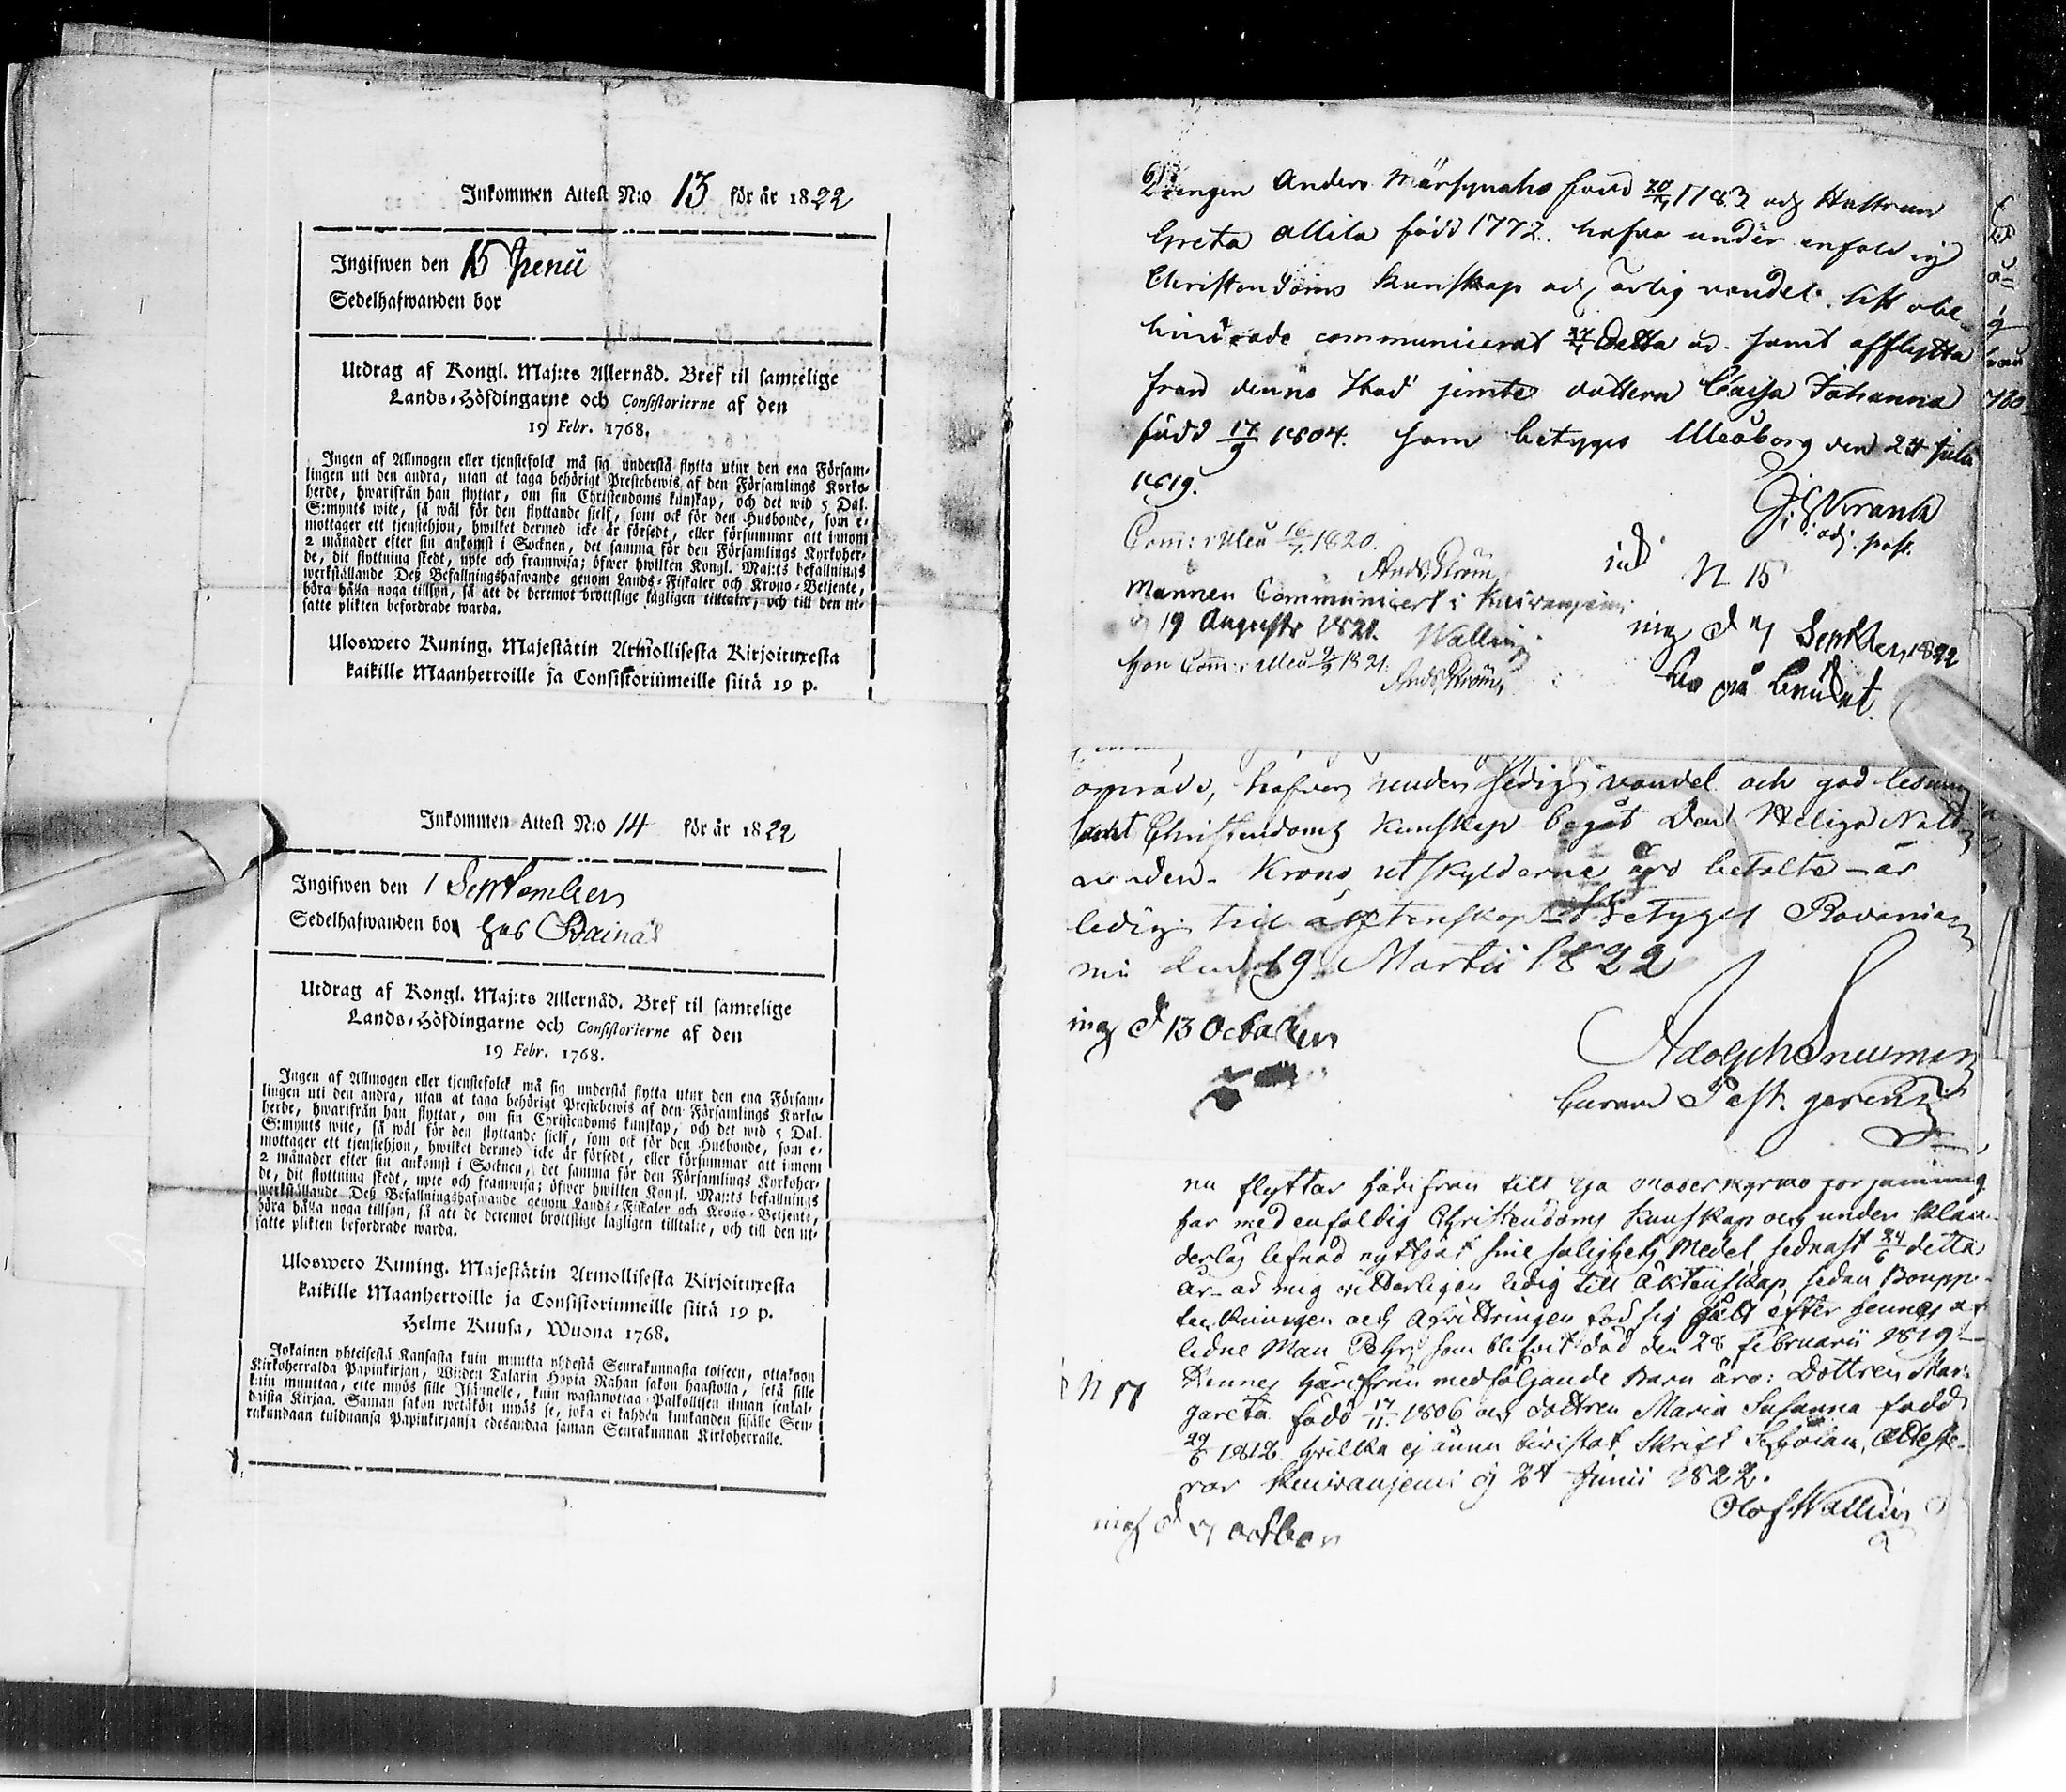 Inkommen Attest N:o 13 för år 1822
Ingifwen den 15 Junii
Sedelhafwanden bor
Utdrag af Kongl. Maj:ts Allernåd. Bref til samtelige
Lands-Höfdingarne och Consistorierne af den
19 Febr. 1768.
Ingen af Allmogen eller tjenstefolck må sig understå flytta utur den ena Försam-
lingen uti den andra, utan at taga behörigt Prestebewis af den Församlings Kyrko-
herde, hwarifrån han flyttar, om sin Christendoms kunskap, och det wid 5 Dal.
S:mynts wite, så wäl för den flyttande sielf, som ock för den Husbonde, som e-
mottager ett tjenstehjon, hwilket dermed icke är försedt, eller försummar att innom
2 månader efter sin ankomst i Socknen, det samma för den Församlings Kyrkoher-
de, dit flyttning skedt, upte och framwisa; öfwer hwilken Kongl. Maj:ts befallnings
werkställande Deß Befallningshafwande genom Lands-Fiskaler och Krono-Betjente,
böra hålla noga tillsyn, så att de deremot brottslige lagligen tilltalte, och till den ut-
satte plikten befordrade warda.
Ulosweto Kuning. Majestätin Armollisesta Kirjoituxesta
kaikille Maanherroille ja Consistoriumeille siitä 19 p.
Inkommen Attest N:o 14 för år 1822
Ingifwen den 1 September
Sedelhafwanden bor hos Baina
Utdrag af Kongl. Maj:ts Allernåd. Bref til samtelige
Lands-Höfdingarne och Consistorierne af den
19 Febr. 1768.
Ingen af Allmogen eller tjenstefolck må sig understå flytta utur den ena Försam-
lingen uti den andra, utan at taga behörigt Prestebewis af den Församlings Kyrko-
herde, hwarifrån han flyttar, om sin Christendoms kunskap, och det wid 5 Dal.
S:mynts wite, så wäl för den flyttande sielf, som ock för den Husbonde, som e-
mottager ett tjenstehjon, hwilket dermed icke är försedt, eller försummar att innom
2 månader efter sin ankomst i Socknen, det samma för den Församlings Kyrkoher-
de, dit flyttning skedt, upte och framwisa; öfwer hwilken Kongl. Maj:ts befallnings
werkställande Deß Befallningshafwande genom Lands-Fiskaler och Krono-Betjente,
böra hålla noga tillsyn, så att de deremot brottslige lagligen tilltalte, och till den ut-
satte plikten befordrade warda.
Ulosweto Kuning. Majestätin Armollisesta Kirjoituxesta
kaikille Maanherroille ja Consistoriumeille siitä 19 p.
Helme Kuusa, Wuona 1768.
Jokainen yhteisestä Kansasta kuin muutta yhdestä Seurakunnasta toiseen, ottakoon
Kirkoherralda Papinkirjan, Wiiden Talarin Hopia Rahan sakon haastolla, setä sille
kuin muuttaa, ette myös sille Isännelle, kuin wastanottaa Palkollisen ilman senkal-
daista Kirjaa. Saman sakon wetäkön myös se, joka ei kahden kuukanden sisälle Seu-
rakundaan tulduansa Papinkirjansa edesandaa saman Seurakunnan Kirkoherralle.
Drengen Anders född 20/11 1783 och Hustrun
Greta Alila född 1772. hafva under enfaldig
Christendoms kunskap och ärlig vandel sitt obe-
hindrade communicerat 27/4 detta år. samt afflytta
från denna Stad jemte dottern Caisa Johanna
född 17/9 1804. Som betygas Uleåborg den 24 Julii
1819.
J. Wrank
adj. past.
Com: i Uleå 16/7 1820.
And. Ström
ind N 15
Mannen Communicert i Kuivaniemi
d 19 Augusti 1821. Wallin
ing d 7 September 1822
Hon Com: i Uleå 9/9 1821.
And. Ström
bor på Landet.
område, hafver under sedig vandel och god lesning
samt Christendoms kunskap begåt Den Heliga Natt-
varden. Krono utskylderne äro betalte - är
ledig till ägtenskap betyget Rovanie-
mi den 19 Martii 1822
ing d 13 October
Adolph Snellman
Curam Past. gerens
nu flyttar härifrån till
har med enfaldig Christendoms kunskap och under klan-
derlös lefnad nyttjat sine salighets Medel sednast 24/6 detta
år - ad mig vitterligen ledig till äktenskap, sedan Boupp-
teckningen och afvittringen tod sig häst efter hennes af-
ledne Man Pehr, som blifvit död den 28 Februarii 1819 -
N 17
Hennes härifrån medföljande Barn äro: Dottren Mar-
gareta född 17/11 1806 och dottren Maria Susanna född
29/6 1812 hvilka ej ännu bevistat Skrift Scholan, Atteste-
rar Kuivaniemi d 24 Junii 1822.
Olof Wallin
ing d 7 october